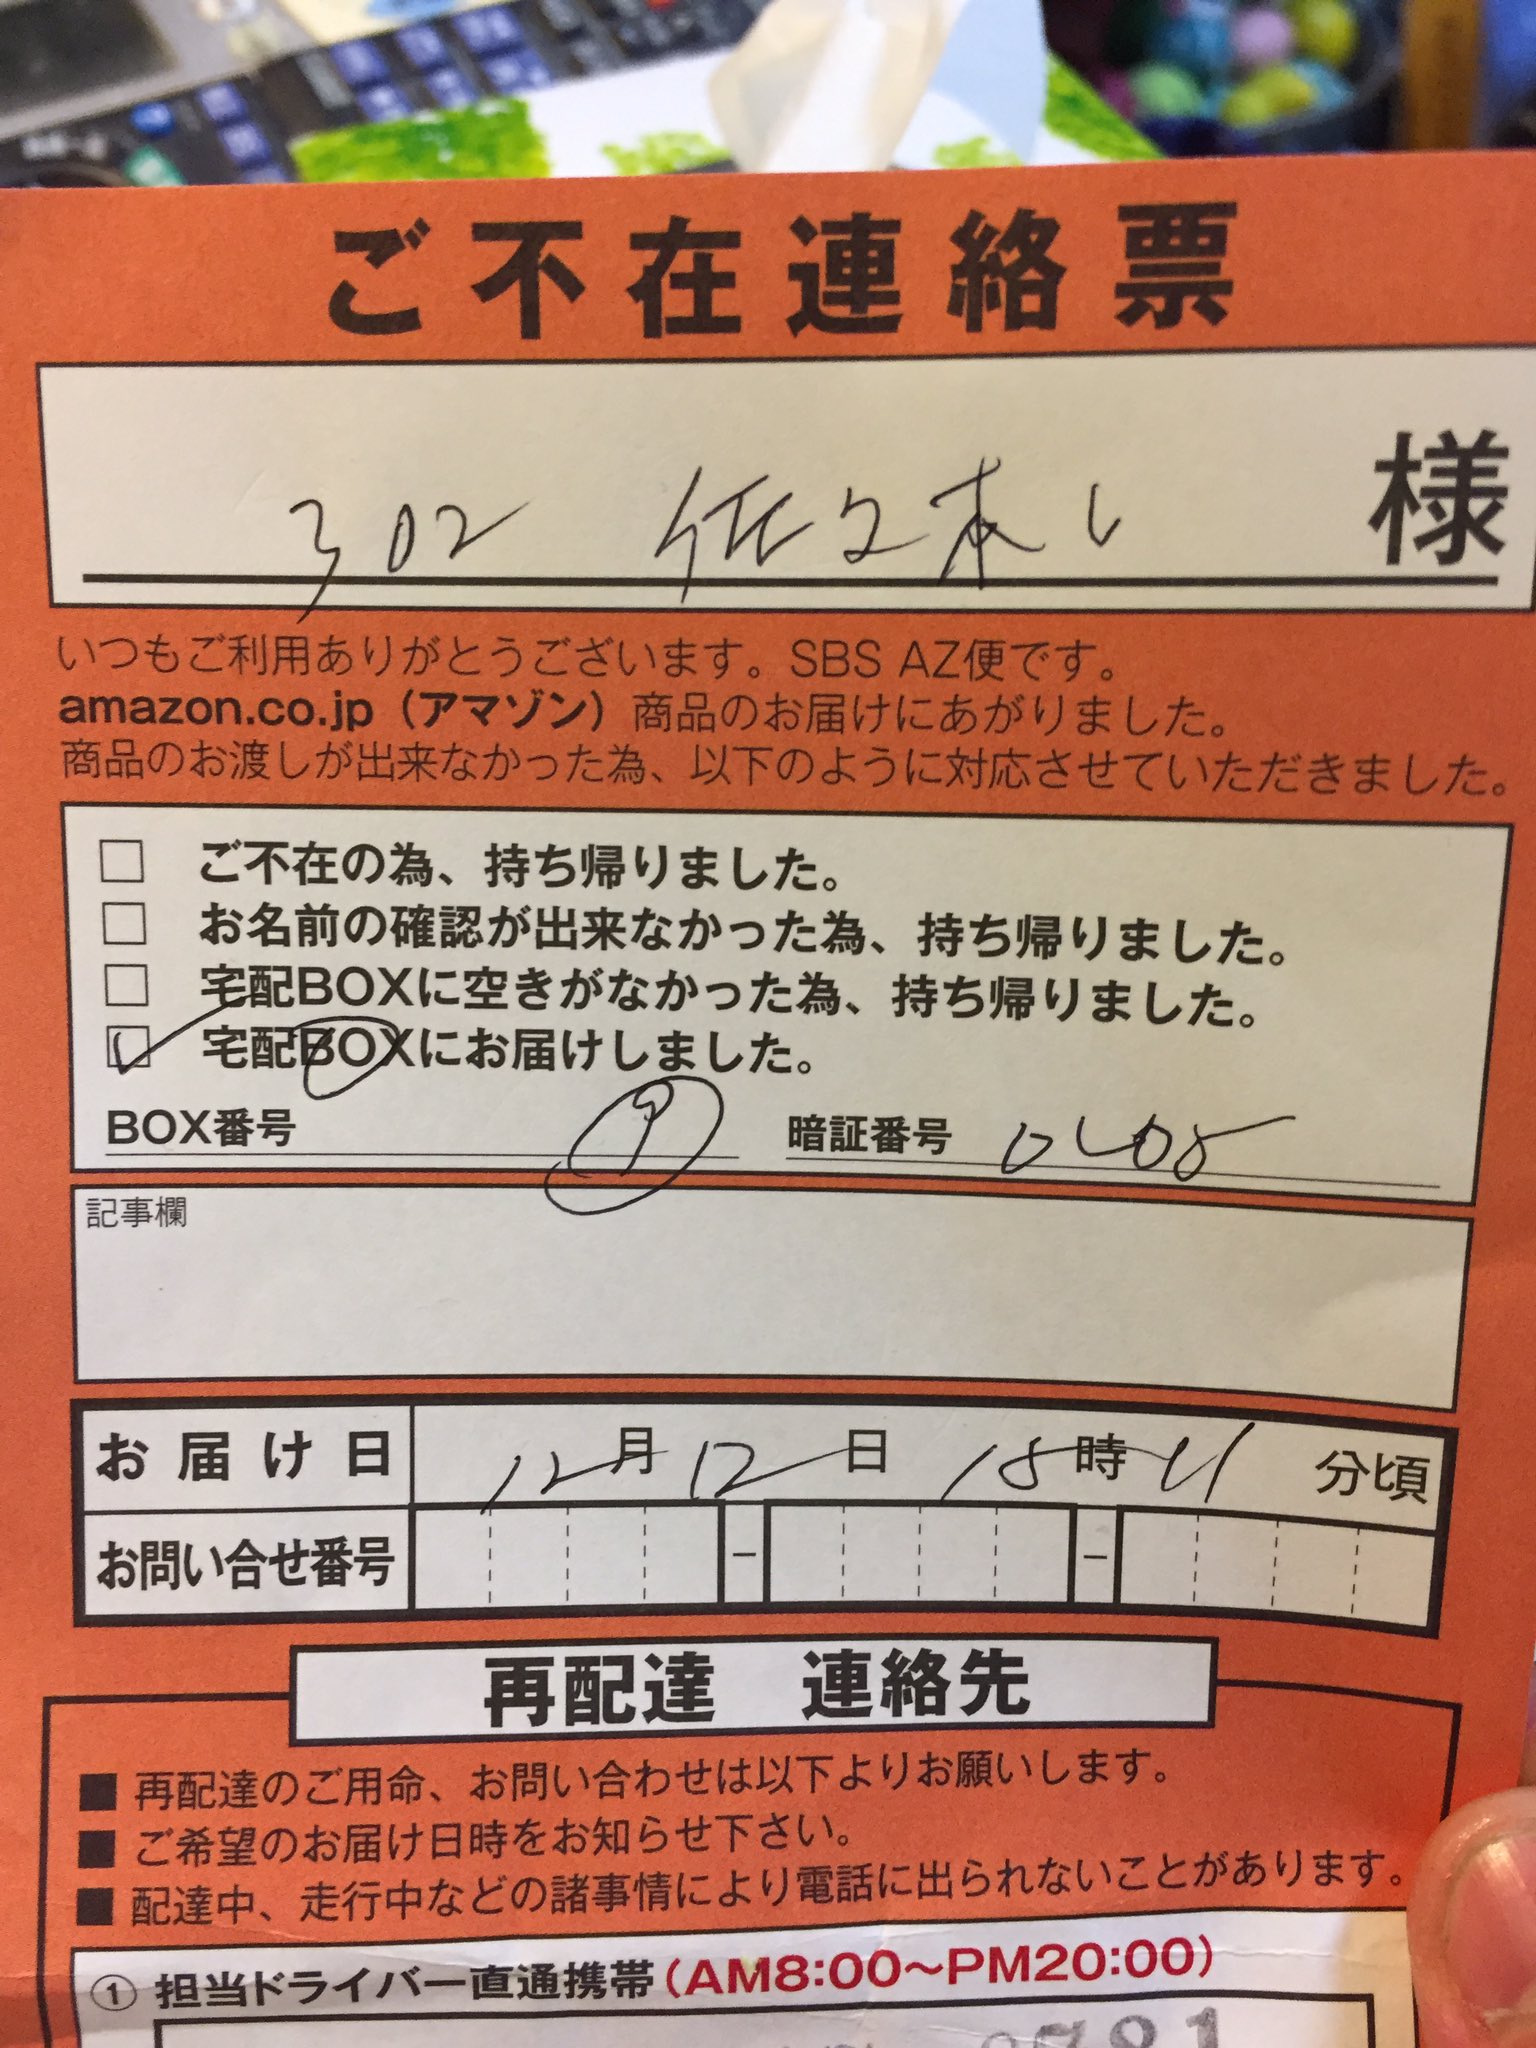 ご不在連絡票
302 佐々木し 様
いつもご利用ありがとうございます。SBS AZ便です。
amazon.co.jp（アマゾン）商品のお届けにあがりました。
商品のお渡しが出来なかった為、以下のように対応させていただきました。
□ ご不在の為、持ち帰りました。
□ お名前の確認が出来なかった為、持ち帰りました。
□ 宅配BOXに空きがなかった為、持ち帰りました。
☑ 宅配BOXにお届けしました。
BOX番号 9 暗証番号
記事欄
お届け日 12月12日 18時 分頃
お問い合せ番号 - -
再配達 連絡先
■ 再配達のご用命、お問い合わせは以下よりお願いします。
■ ご希望のお届け日時をお知らせ下さい。
■ 配達中、走行中などの諸事情により電話に出られないことがあります。
① 担当ドライバー直通携帯(AM8:00～PM20:00)